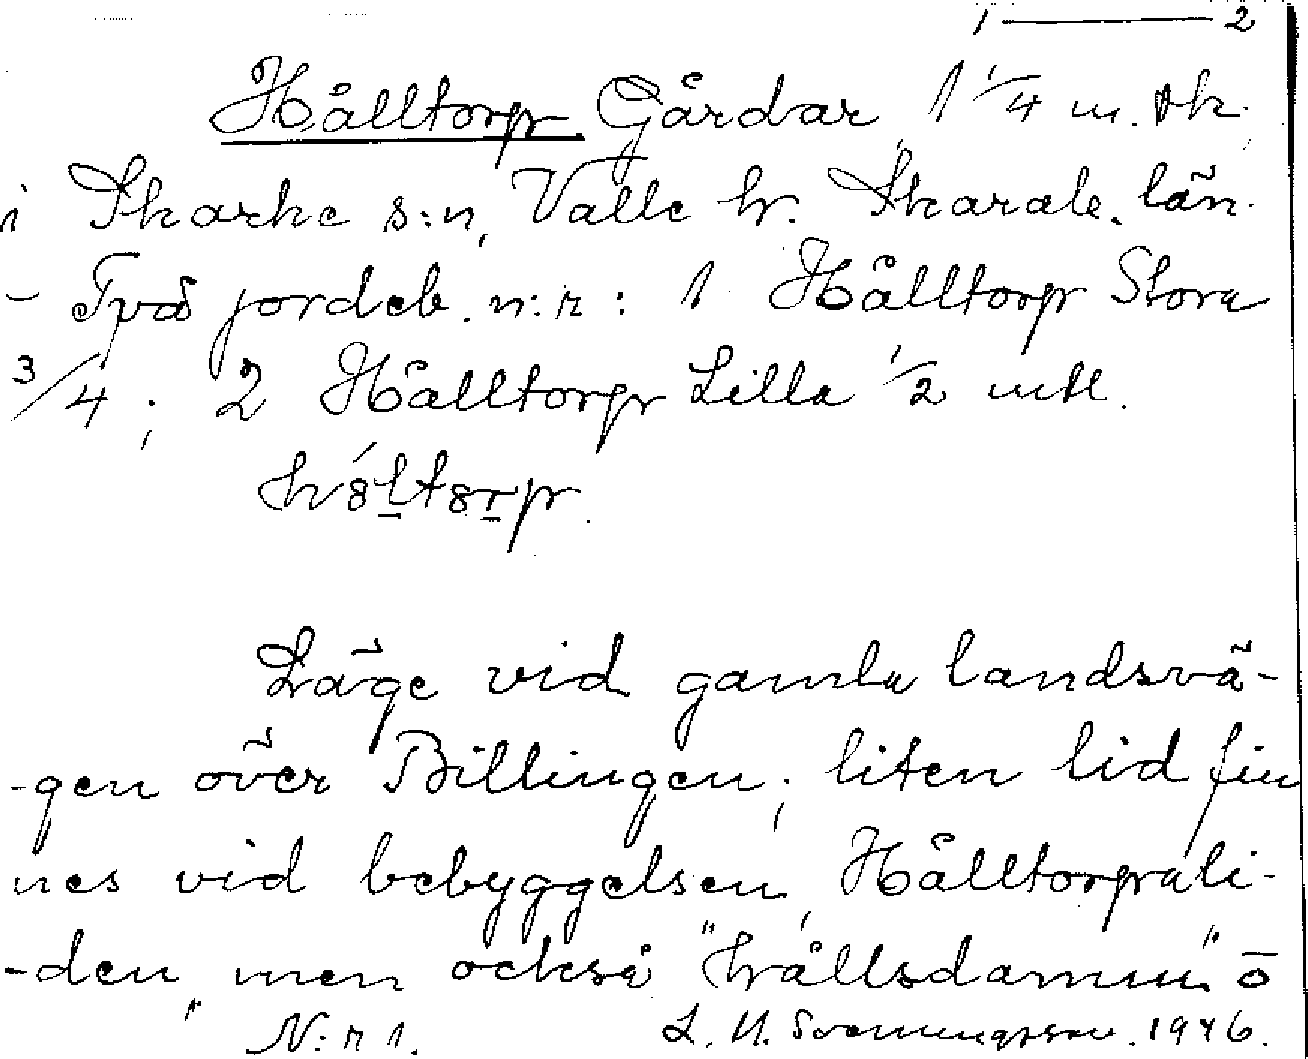 1 — 2
Hålltorp Gårdar 1 1/4 m.tk.
i Skarke s:n, Valle hr. Skarab. län.
– Två jordeb. n:r : 1 Hålltorp Stora
3/4 ; 2 Hålltorp Lilla 1/2 mtl.
Läge vid gamla landsvä-
-gen över Billingen; liten lid fin
nes vid bebyggelsen, Hålltorpali-
-den, men också "hållsdamm" ö
N:r 1. L. M. Svenungsson. 1946.